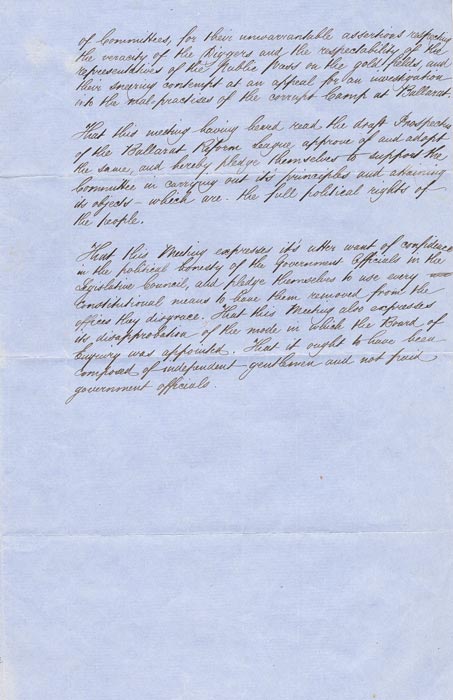 of Committees, for their unwarrantable assertions respecting
the veracity of the Diggers and the respectability of the
representatives of the Public Press on the gold fields, and
their sneering contempt at an appeal for an investigation
into the mal-practises of the corrupt Camp at Ballarat.
That this meeting having heard read the draft Prospectus
of the Ballarat Reform League, approve of and adopt
the same, and hereby pledge themselves to support the
Committee in carrying out its principles and attaining
its objects – which are – the full political rights of
the people.
That this Meeting expresses it's utter want of confidence
in the political honesty of the Government Officials in the
Legislative Council, and pledge themselves to use every
Constitutional means to have them removed from the
offices they disgrace. That this Meeting also expresses
its disapprobation of the mode in which the Board of
Enquiry was appointed. That it ought to have been
composed of independent gentlemen and not paid
government officials.